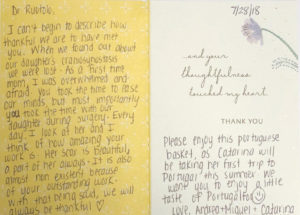 Dr. Ruotolo,
I can't begin to describe how
thankful we are to have met
you. When we found out about
our daughter's craniosynostosis
we were lost. As a first time
mom, I was overwhelmed and
afraid. You took the time to ease
our minds but most importantly
you took the time with our
daughter during surgery. Every
day I look at her and I
think of how amazing your
work is. Her scar is beautiful,
a part of her always. It is also
almost non existent because
of your outstanding work.
With that being said, we will
always be thankful! ♡
7/28/18
...and your
thoughtfulness
touched my heart.
THANK YOU
Please enjoy this portuguese
basket, as Catarina will
be taking her first trip to
Portugal this summer we
want you to enjoy a little
taste of Portugal too ☺
Love, Andrea + Miguel + Catarina